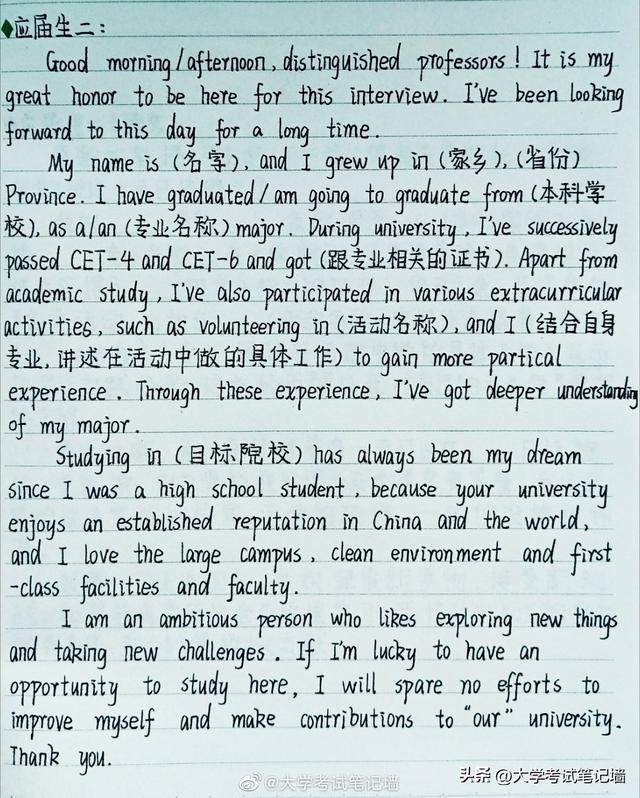 ◆应届生二：
Good morning/afternoon, distinguished professors! It is my
great honor to be here for this interview. I've been looking
forward to this day for a long time.
My name is (名字), and I grew up in (家乡), (省份)
Province. I have graduated/am going to graduate from (本科学
校), as a/an (专业名称) major. During university, I've successively
passed CET-4 and CET-6 and got (跟专业相关的证书). Apart from
academic study, I've also participated in various extracurricular
activities, such as volunteering in (活动名称), and I (结合自身
专业, 讲述在活动中做的具体工作) to gain more partical
experience. Through these experience, I've got deeper understanding
of my major.
Studying in (目标院校) has always been my dream
since I was a high school student, because your university
enjoys an established reputation in China and the world,
and I love the large campus, clean environment and first
-class facilities and faculty.
I am an ambitious person who likes exploring new things
and taking new challenges. If I'm lucky to have an
opportunity to study here, I will spare no efforts to
improve myself and make contributions to "our" university.
Thank you.
@大学考试笔记墙
头条 @大学考试笔记墙